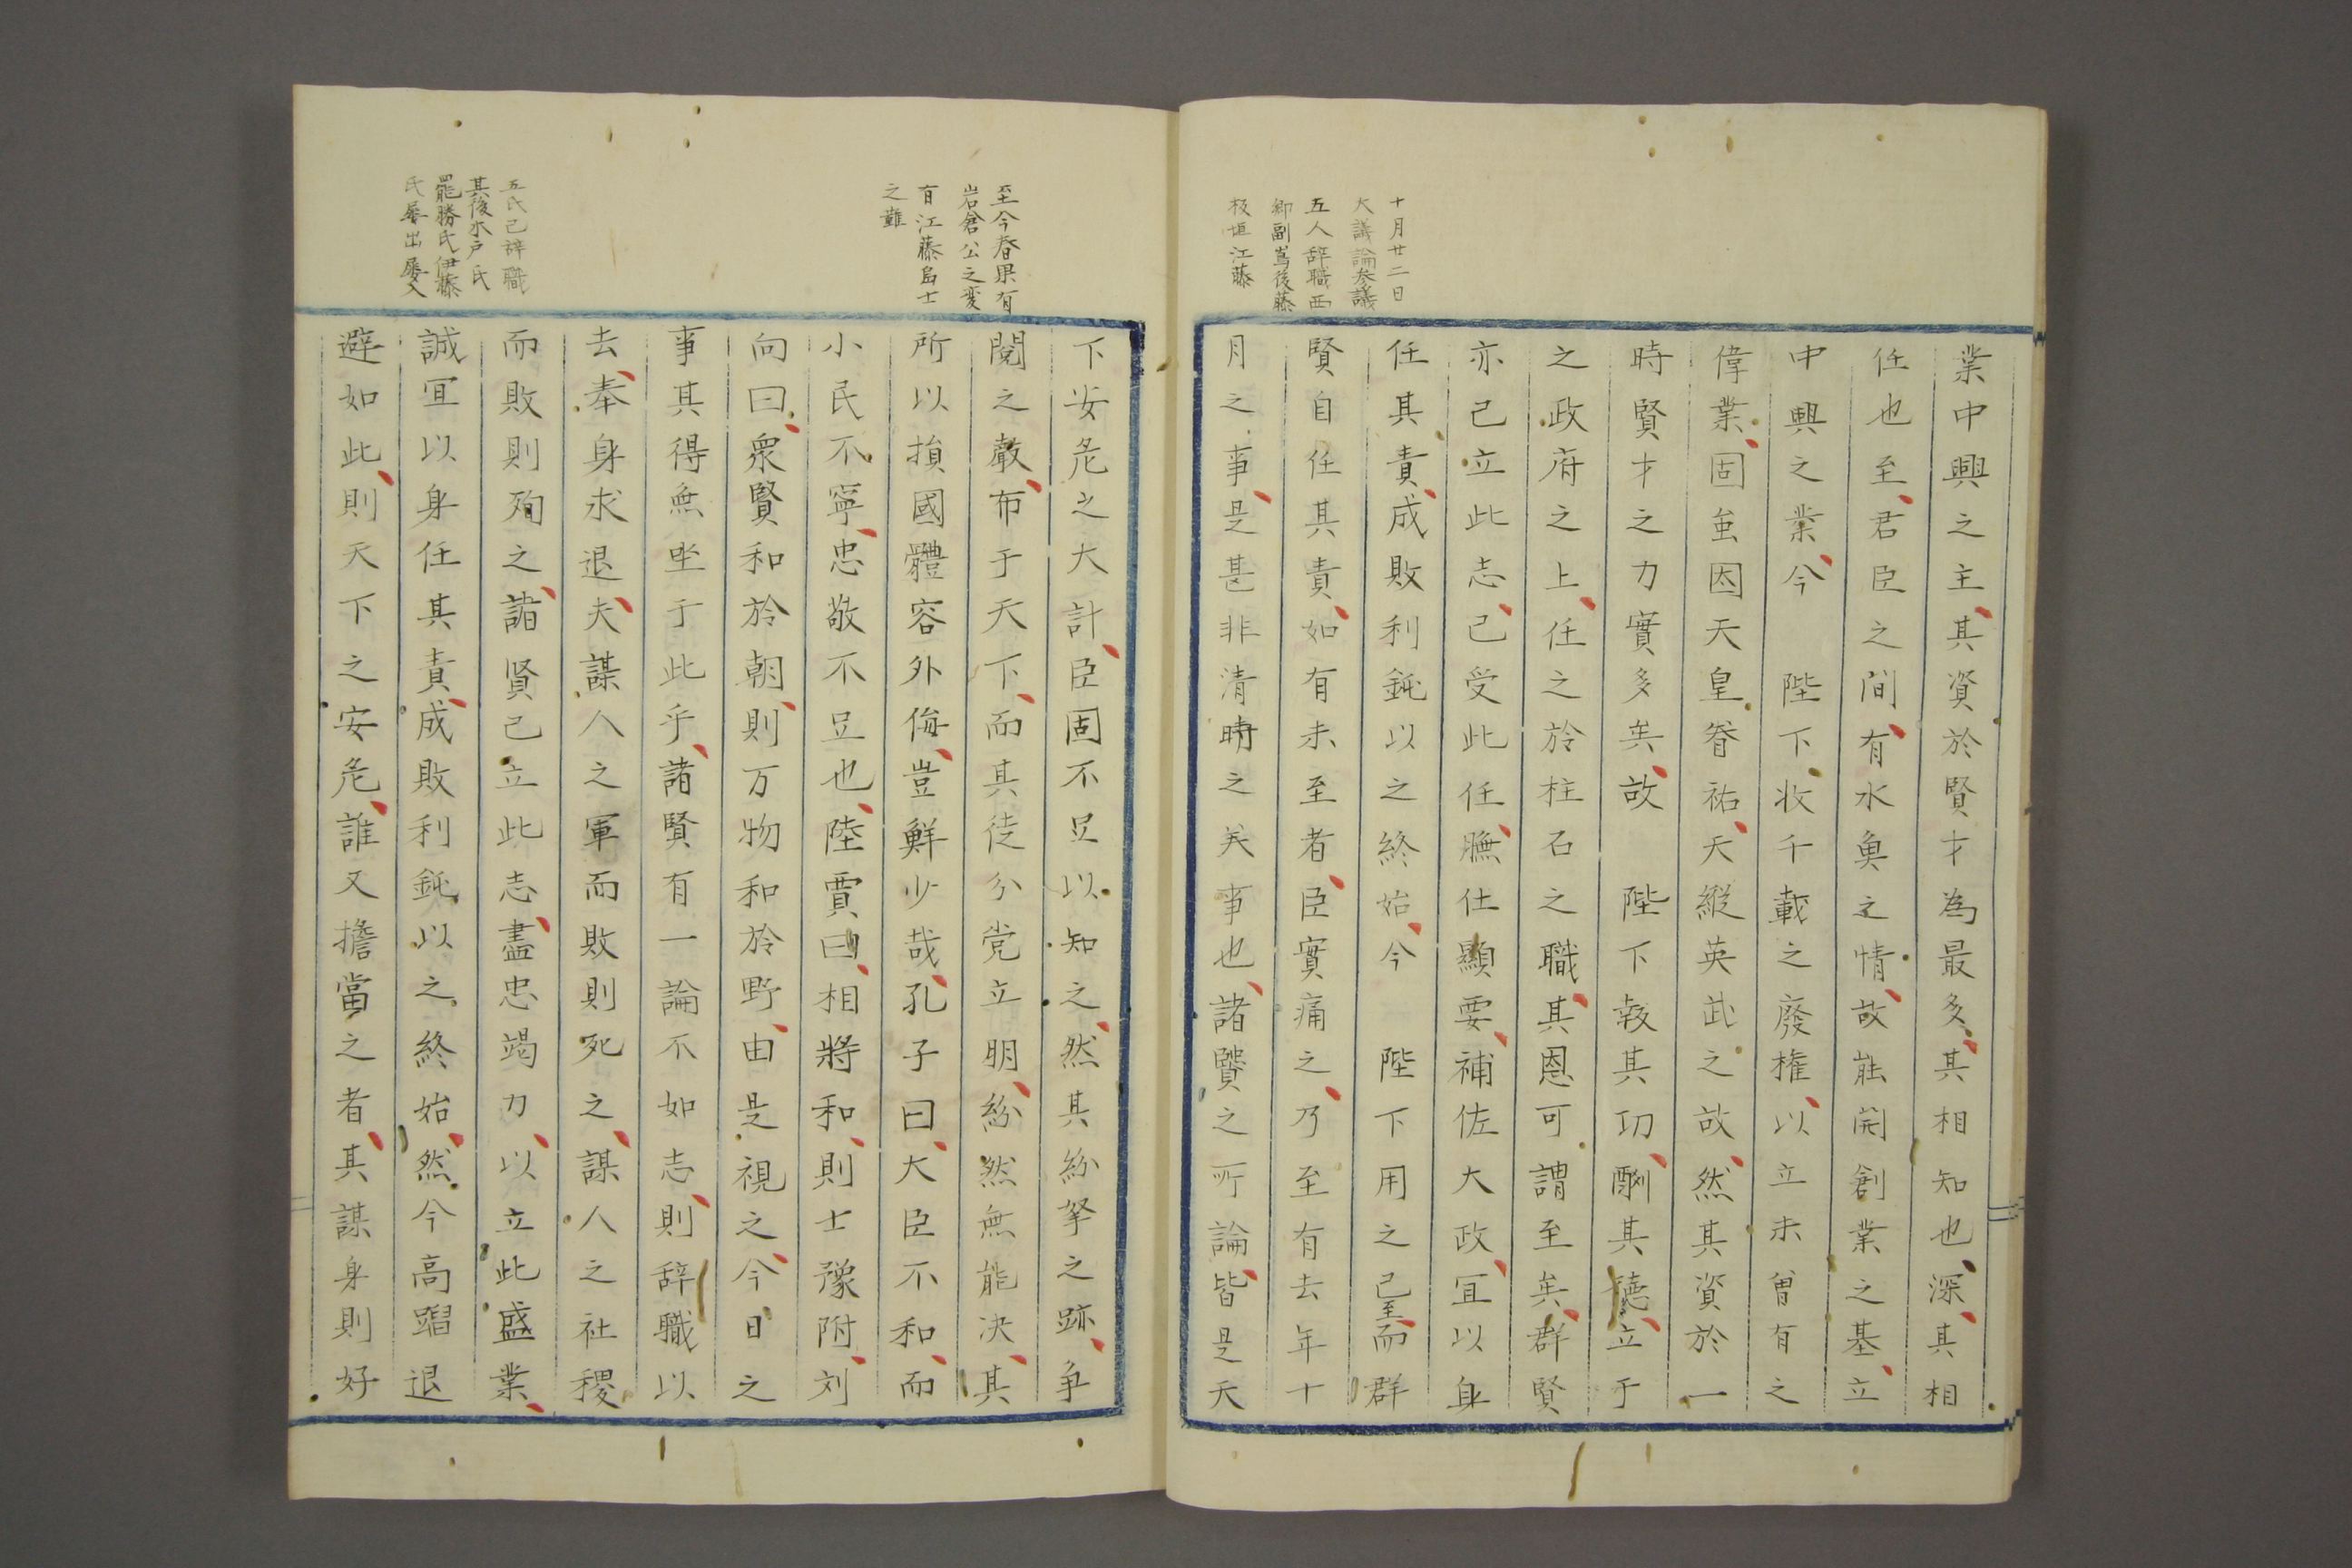 十月廿二日
大議論参議
五人辞職西
郷副嶌後藤
板垣江藤
業中興之主其資於賢才為最多其相知也深其相
任也至君臣之間有水魚之情故能開創業之基立
中興之業今　陛下收千載之廢權以立未曾有之
偉業固虽因天皇眷祐天縦英武之故然其資於一
時賢才之力實多矣故　陛下敍其功酬其德立于
之政府之上任之於柱石之職其恩可謂至矣群賢
亦已立此志已受此任膴仕顯要補佐大政宜以身
任其責成敗利鈍以之終始今　陛下用之已至而群
賢自任其責如有未至者臣實痛之乃至有去年十
月之事是甚非清時之美事也諸賢之所論皆是天
至今春果有
岩倉公之変
有江藤島士
之難
五氏已辞職
其後木戸氏
罷勝氏伊藤
氏屡出屡入
下安危之大計臣固不足以知之然其紛拏之跡争
閲之聲布于天下而其徒分党立明紛然無能决其
所以損國體容外侮豈鮮少哉孔子曰大臣不和而
小民不寧忠敬不足也陸賈曰相將和則士豫附刘
向曰衆賢和於朝則万物和於野由是視之今日之
事其得無坐于此乎諸賢有一論不如志則辞職以
去奉身求退夫謀人之軍而敗則死之謀人之社稷
而敗則殉之諸賢已立此志盡忠竭力以立此盛業
誠宜以身任其責成敗利鈍以之終始然今高蹈退
避如此則天下之安危誰又擔當之者其謀身則好